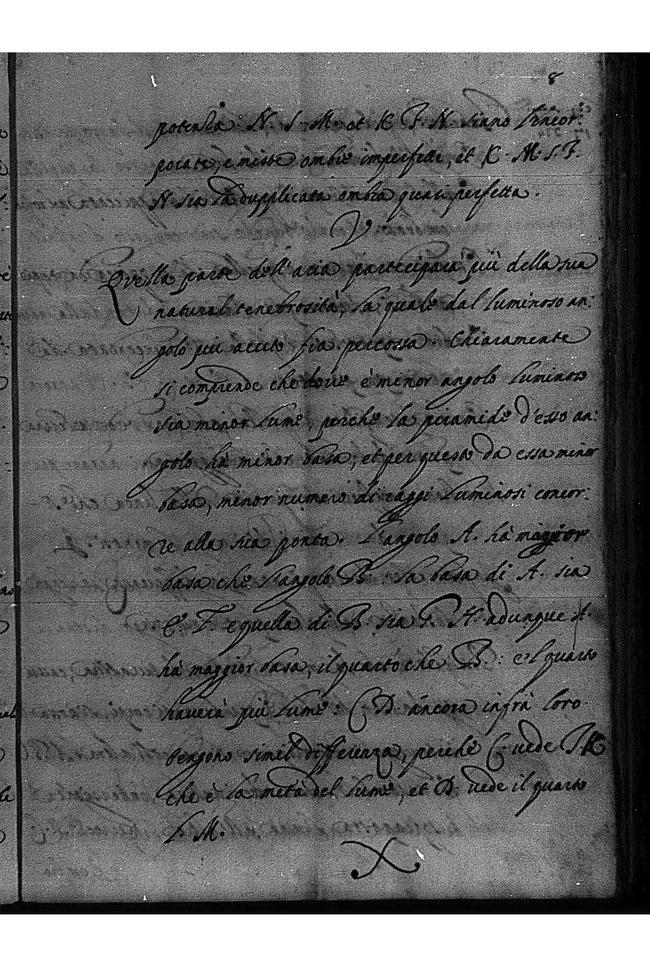 8
potenza: N. S. M. et K F. N siano l'incor:
porate, e miste ombre imperfette, et K. M. S. F.
N sia la dupplicata ombra quasi perfetta.
V
Quella parte dell'aria parteciparà più della sua
natural tenebrosità, la quale dal luminoso an:
golo più acuto fia percossa. Chiaramente
si comprende che dove è minor angolo luminoso
sia minor lume, perche la piramide d'esso an:
golo hà minor basa, et per questo da essa minor
basa, minor numero di raggi luminosi concor:
re alla sua ponta. L'angolo A. hà maggior
basa che l'angolo B: la basa di A. sia
E. F. e quella di B sia G. H adunque A.
hà maggior basa, il quarto che B.: e il quarto
haverà più lume: C D. ancora infrà loro
tengono simel differenza, perche C. vede I K
che è la metà del lume, et D. vede il quarto
L. M.
X